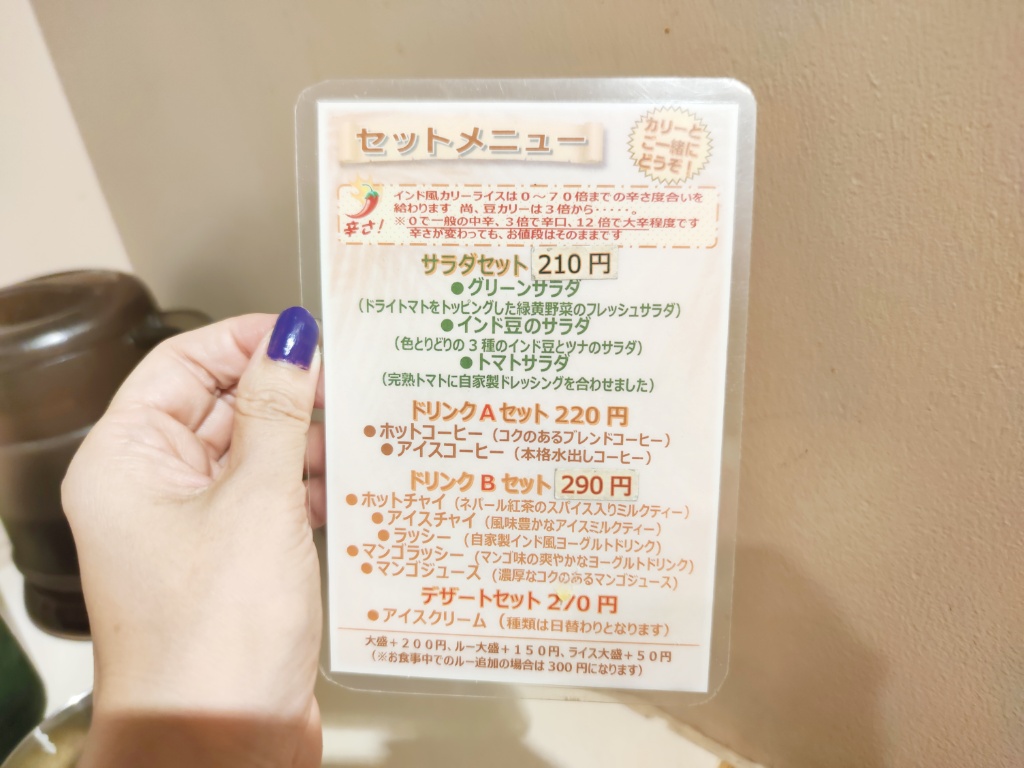 セットメニュー
カリーと
ご一緒に
どうぞ!
辛さ!
インド風カリーライスは0~70倍までの辛さ度合いを
給わります 尚、豆カリーは3倍から‥‥‥。
※0で一般の中辛、3倍で辛口、12倍で大辛程度です
辛さが変わっても、お値段はそのままです
サラダセット 210円
●グリーンサラダ
(ドライトマトをトッピングした緑黄野菜のフレッシュサラダ)
●インド豆のサラダ
(色とりどりの3種のインド豆とツナのサラダ)
●トマトサラダ
(完熟トマトに自家製ドレッシングを合わせました)
ドリンクAセット 220円
●ホットコーヒー(コクのあるブレンドコーヒー)
●アイスコーヒー(本格水出しコーヒー)
ドリンクBセット 290円
●ホットチャイ(ネパール紅茶のスパイス入りミルクティー)
●アイスチャイ(風味豊かなアイスミルクティー)
●ラッシー(自家製インド風ヨーグルトドリンク)
●マンゴラッシー(マンゴ味の爽やかなヨーグルトドリンク)
●マンゴジュース(濃厚なコクのあるマンゴジュース)
デザートセット 270円
●アイスクリーム(種類は日替わりとなります)
大盛+200円、ルー大盛+150円、ライス大盛+50円
(※お食事中でのルー追加の場合は300円になります)